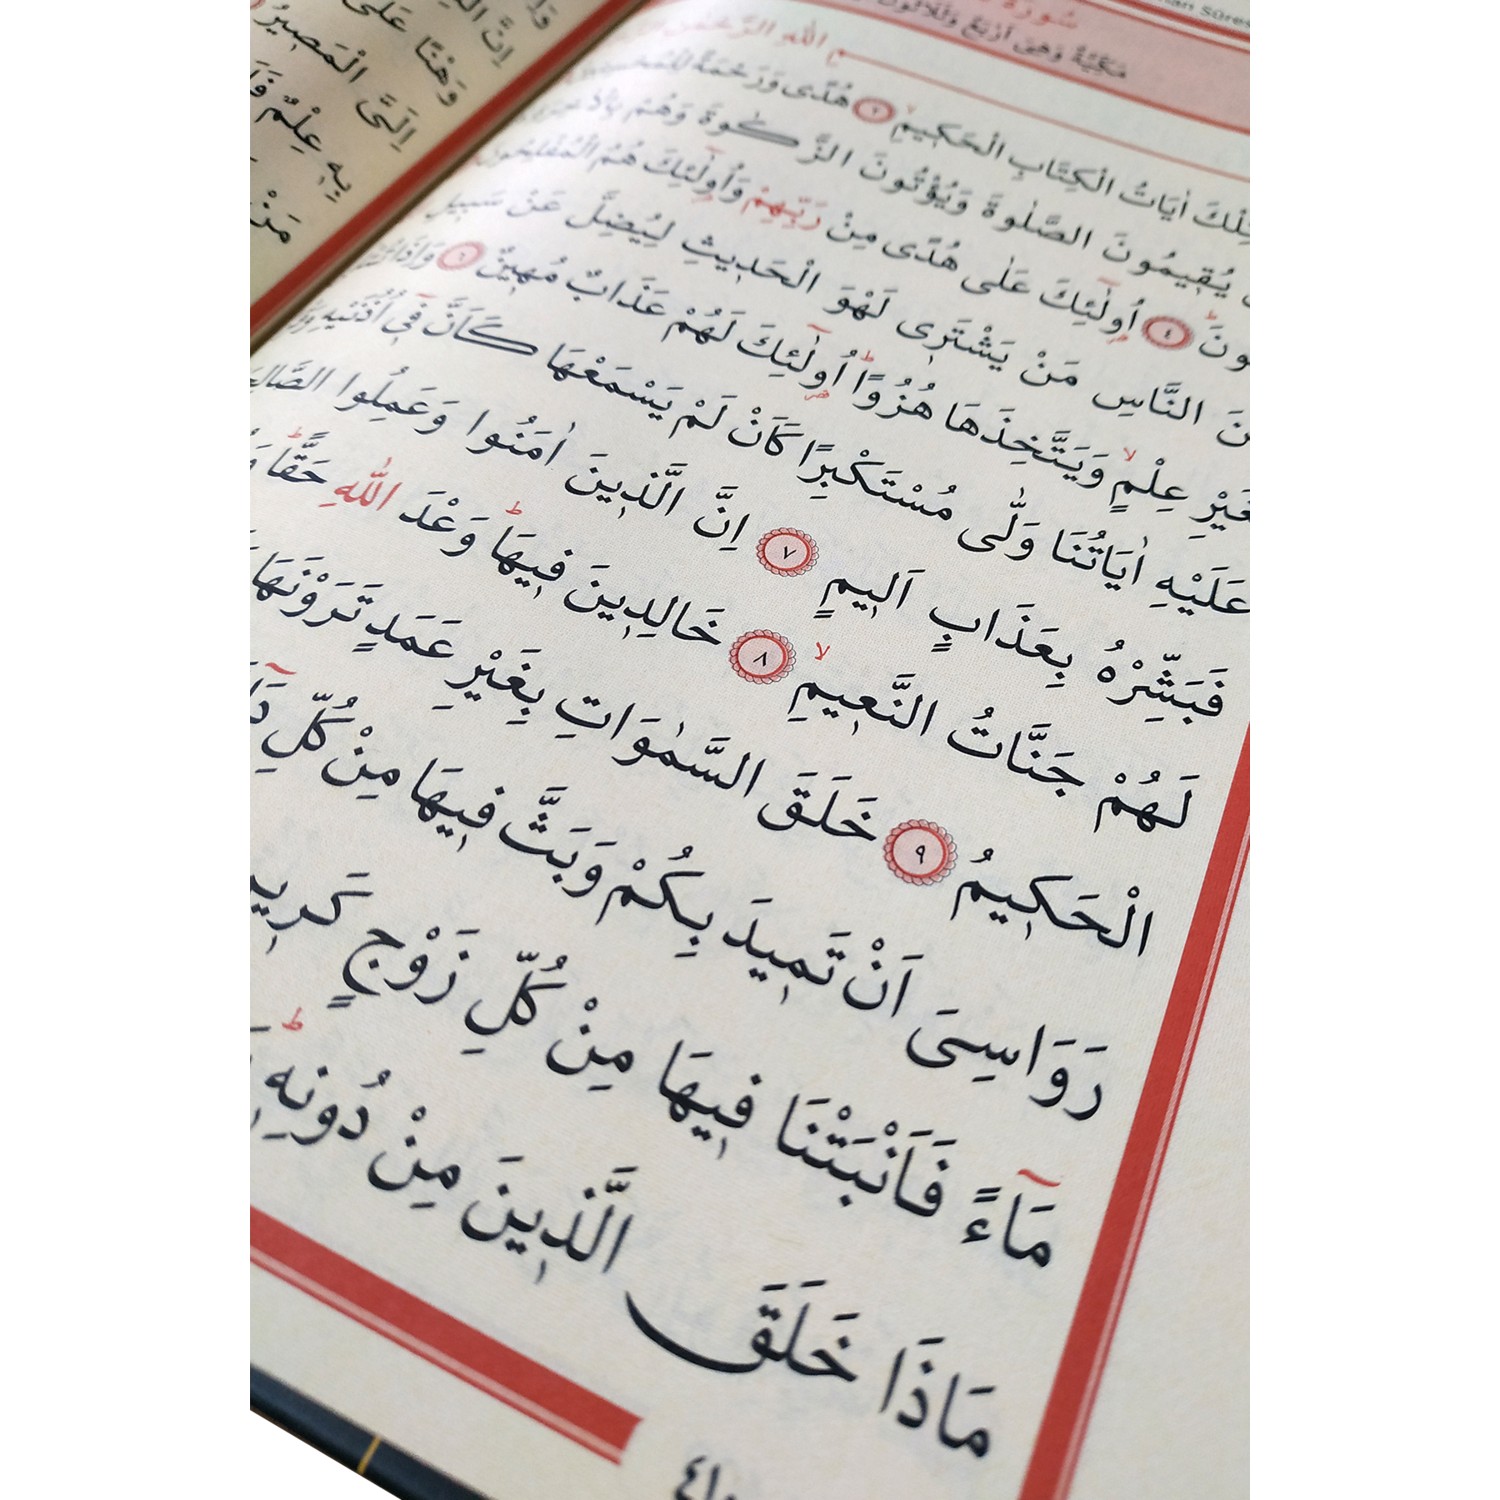 اِنَّ
وَهْنًا عَلٰى
اِلَىَّ الْمَصِيرُ
بِهٖ عِلْمٌ
مَنْ
سُورَةُ
مَكِّيَّةٌ وَهِىَ اَرْبَعٌ وَثَلَاثُونَ
اللّٰهِ الرَّحْمٰنِ
تِلْكَ اٰيَاتُ الْكِتَابِ الْحَكِيمِۙ ٢ هُدًى وَرَحْمَةً
يُقِيمُونَ الصَّلٰوةَ وَيُؤْتُونَ الزَّكٰوةَ وَهُمْ
ونَۜ ٤ اُولٰٓئِكَ عَلٰى هُدًى مِنْ رَبِّهِمْ وَاُولٰٓئِكَ هُمُ الْمُفْلِحُونَ
نَ النَّاسِ مَنْ يَشْتَرٖى لَهْوَ الْحَدٖيثِ لِيُضِلَّ عَنْ سَبٖيلِ
غَيْرِ عِلْمٍۙ وَيَتَّخِذَهَا هُزُوًاۜ اُولٰٓئِكَ لَهُمْ عَذَابٌ مُهٖينٌ ٦ وَاِذَا
عَلَيْهِ اٰيَاتُنَا وَلّٰى مُسْتَكْبِرًا كَاَنْ لَمْ يَسْمَعْهَا كَاَنَّ فٖٓى اُذُنَيْهِ
فَبَشِّرْهُ بِعَذَابٍ اَلٖيمٍ ٧ اِنَّ الَّذٖينَ اٰمَنُوا وَعَمِلُوا الصَّالِ
لَهُمْ جَنَّاتُ النَّعٖيمِۙ ٨ خَالِدٖينَ فٖيهَاۜ وَعْدَ اللّٰهِ حَقًّاۜ
الْحَكٖيمُ ٩ خَلَقَ السَّمٰوَاتِ بِغَيْرِ عَمَدٍ تَرَوْنَهَا
رَوَاسِىَ اَنْ تَمٖيدَ بِكُمْ وَبَثَّ فٖيهَا مِنْ كُلِّ
مَٓاءً فَاَنْبَتْنَا فٖيهَا مِنْ كُلِّ زَوْجٍ كَرٖيمٍ
مَاذَا خَلَقَ الَّذٖينَ مِنْ دُونِهٖۜ